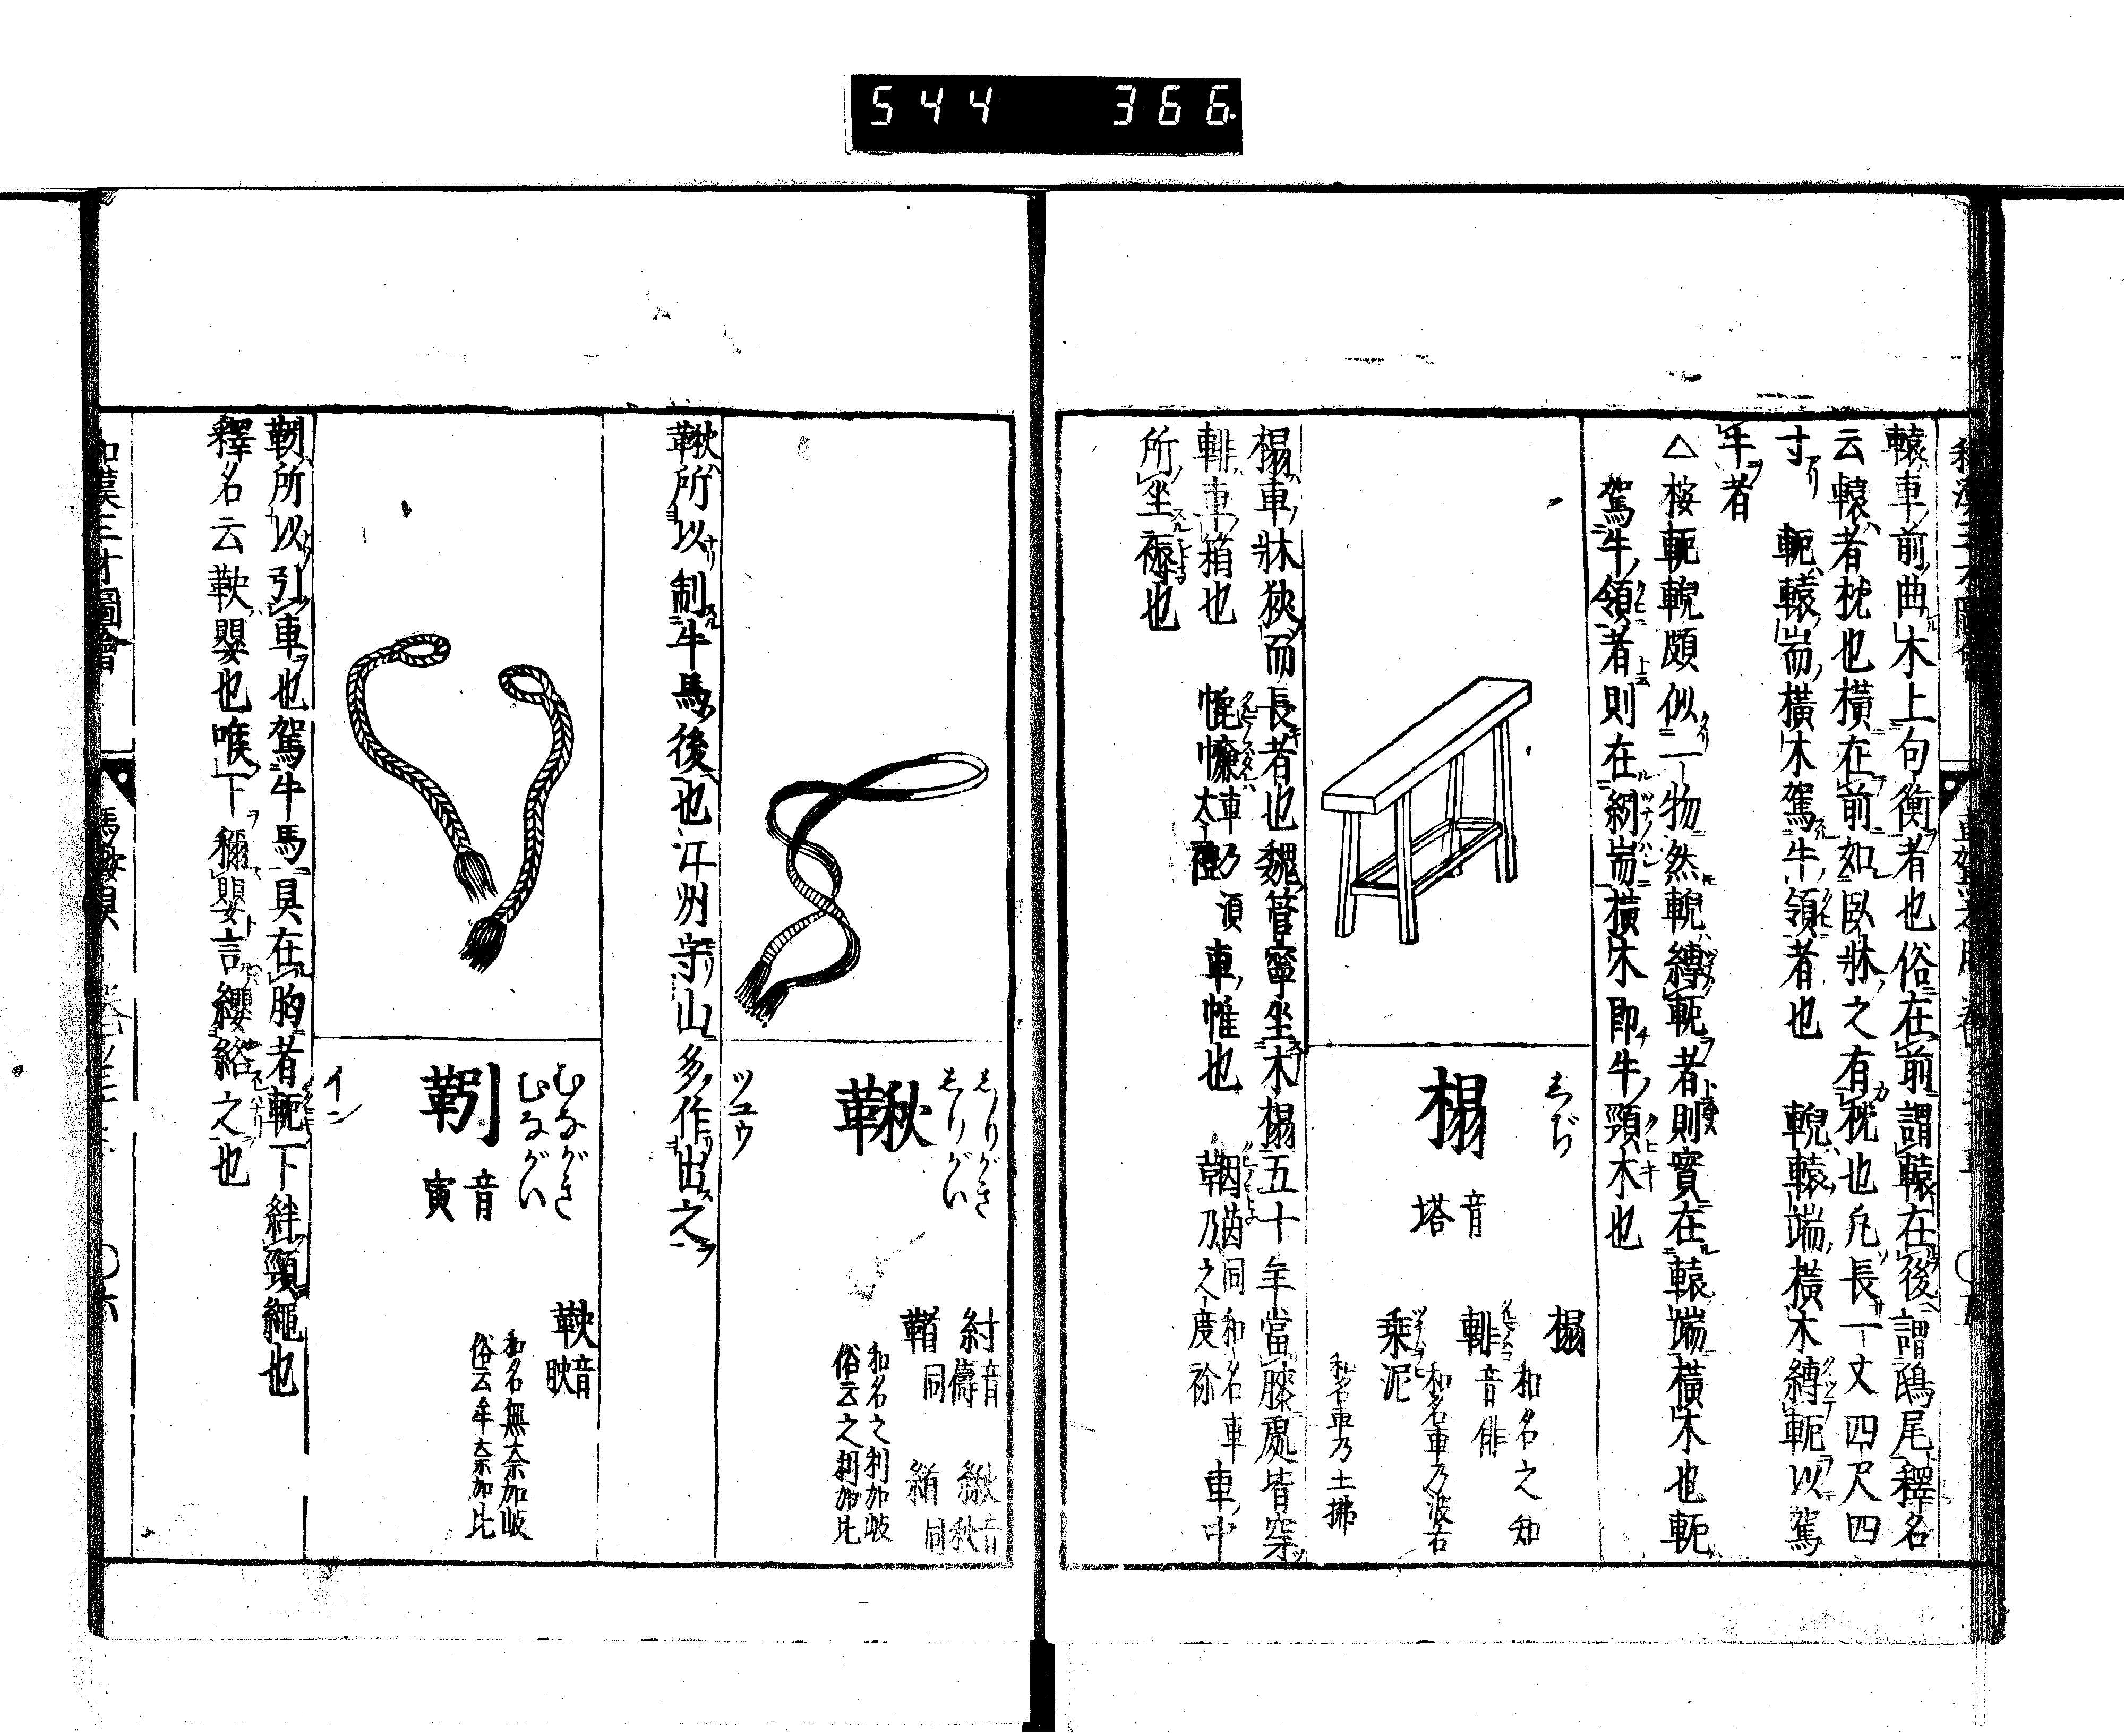 544 366
轅車前曲木上句衡者也俗在前謂轅在後謂鴟尾釋名
云轅者枕也橫在前如臥牀之有枕也凡長一丈四尺四
寸 軛轅耑橫木駕牛領者也 輗轅端橫木縛軛以駕
牛者
△桉軛輗頗似一物然輗縛軛者則實在轅端橫木也軛
駕牛領者則在綱耑橫木即牛頸木也
しぢ
榻
音塔
榻 和名之知
輫 音俳 和名車乃波古
乘泥 和名車乃土拂
榻車牀狹而長者也魏管寧坐木榻五十年當膝處皆穿
輫車箱也 車乃須太禮 車帷也 茵同 和名車乃之度祢 車中
所坐褥也
しりがき
しりがい
鞦
ツユウ
紂 音儔 緧 音秋
鞧 同 同
和名之利加岐
俗云之利加比
鞦所以制牛馬後也江州守山多作出之
むながき
むながい
靷
音寅
イン
鞅 音映
和名無奈加岐
俗云牟奈加比
靷所以引車也駕牛馬具在胸者軛下絆頸繩也
釋名云鞅嬰也喉下稱嬰言纓絡之也
和漢三才圖會 馬鞍具